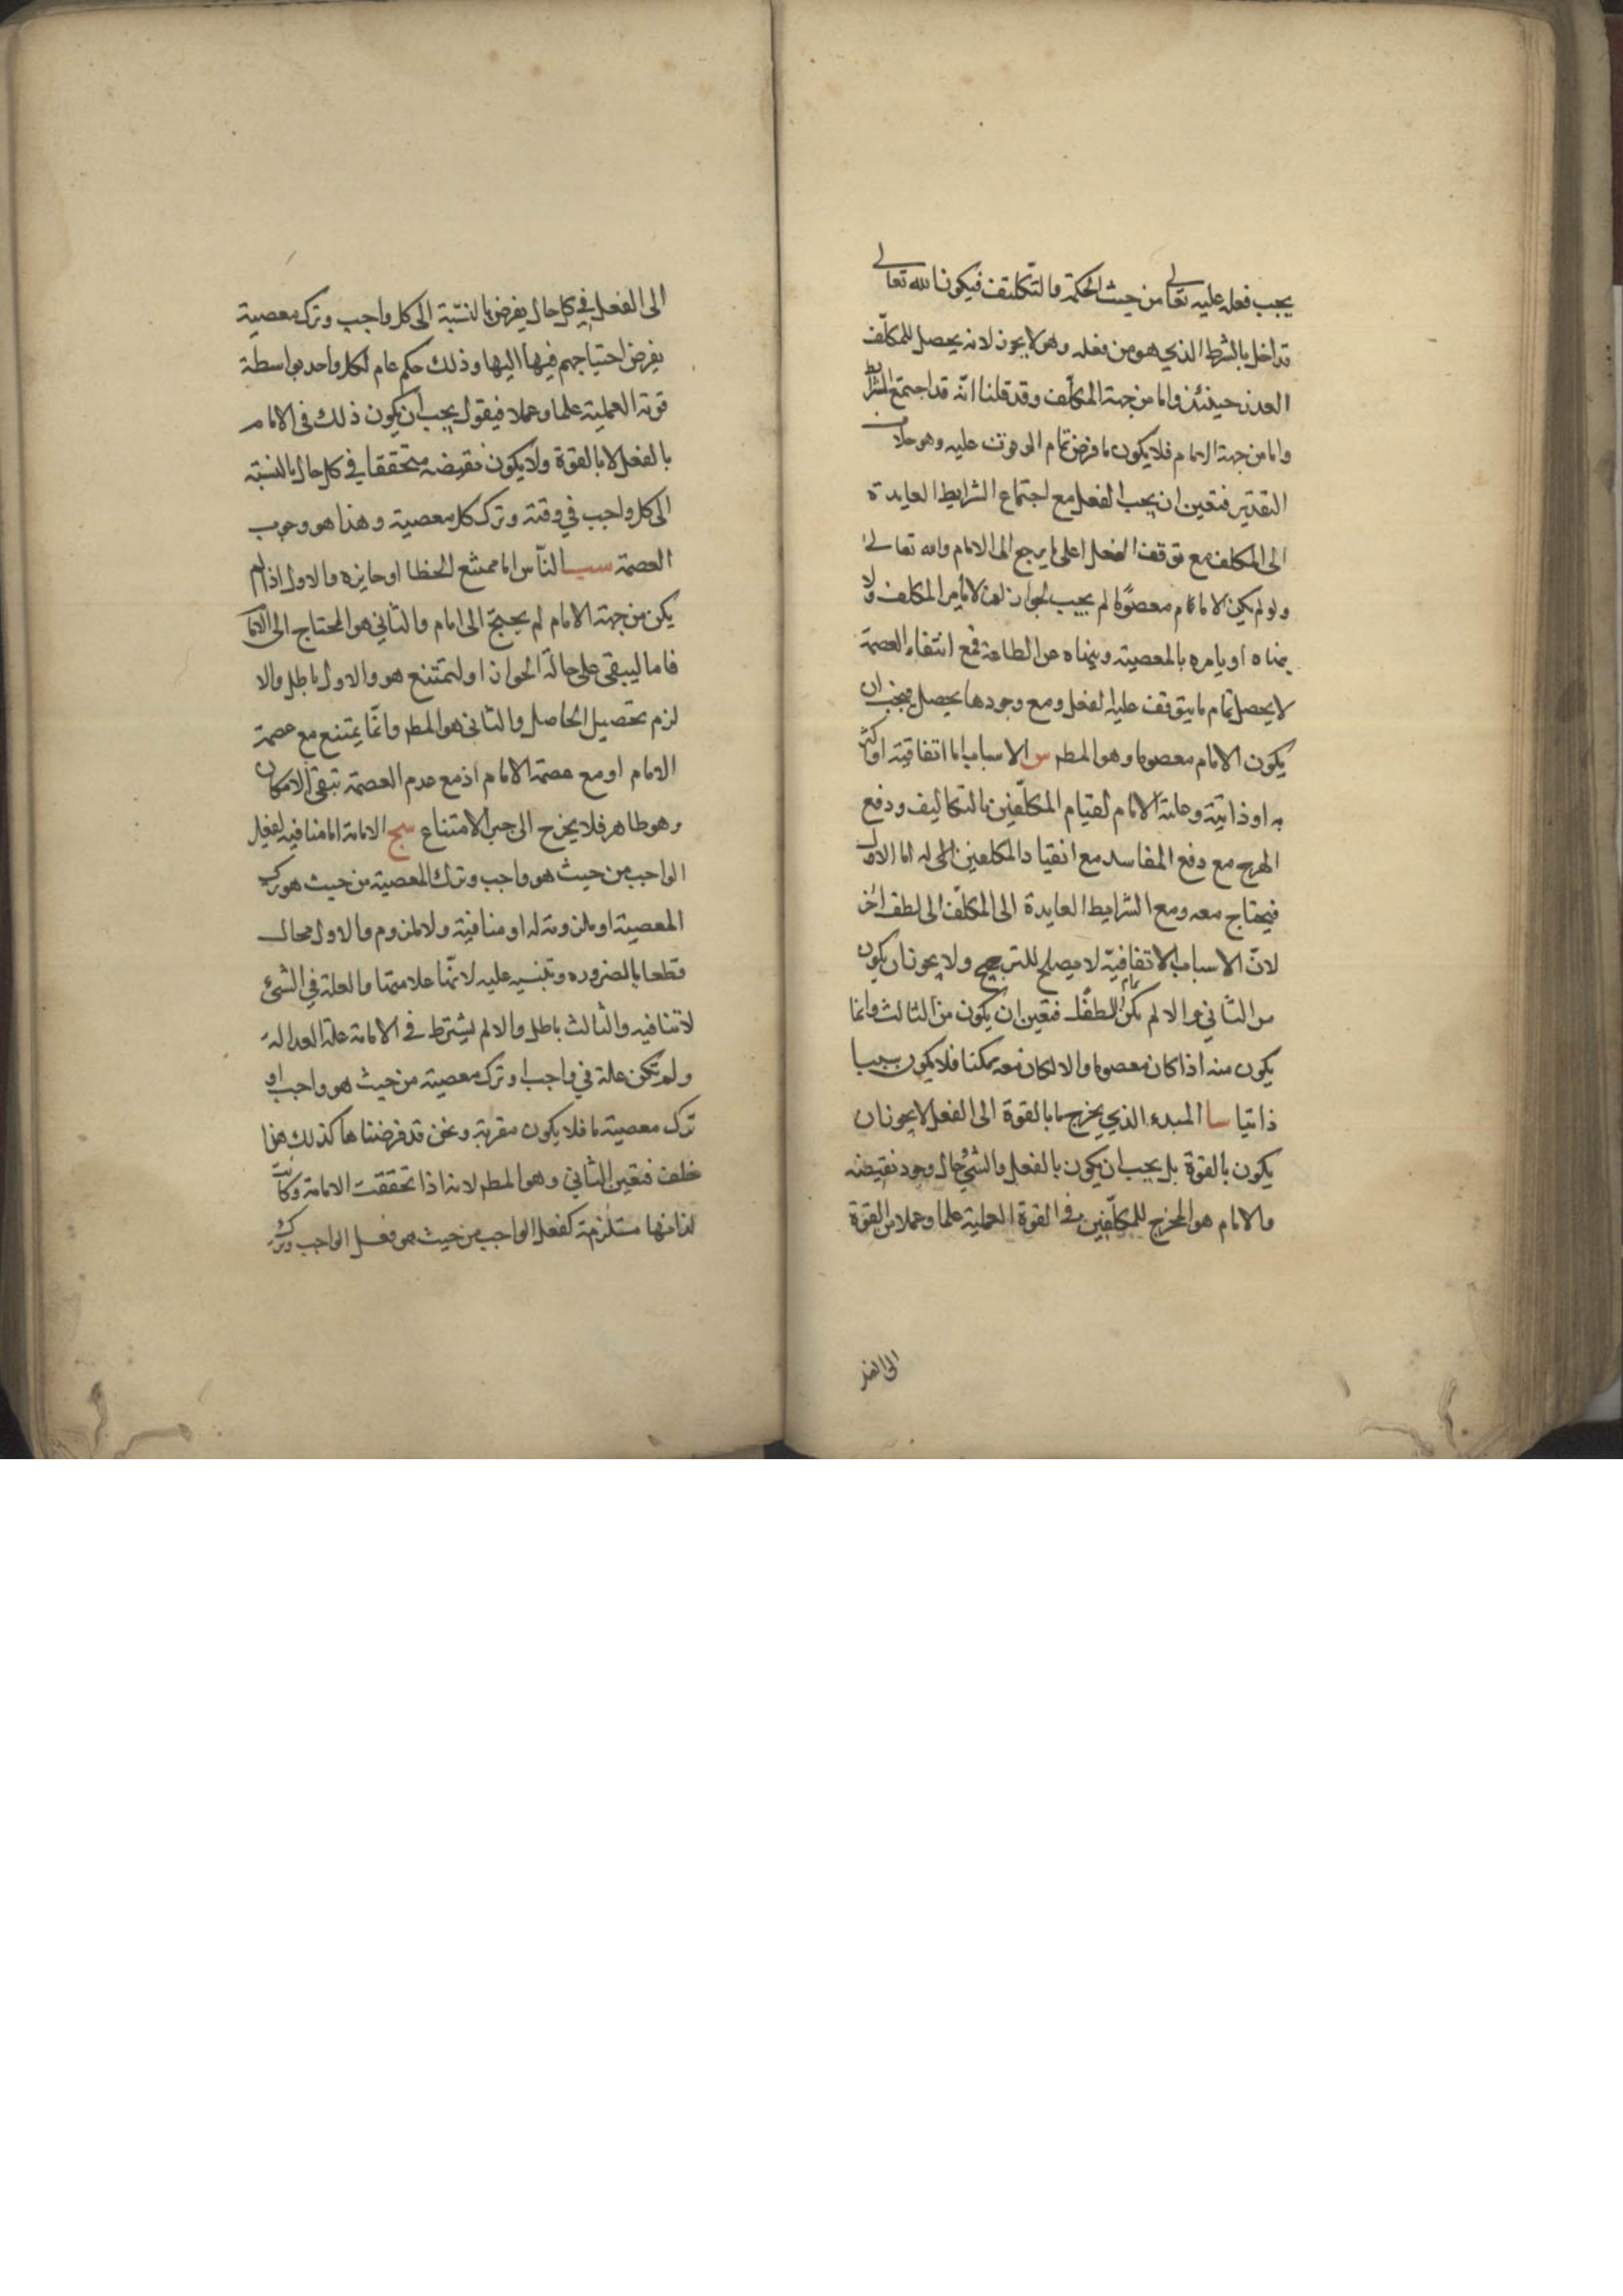 يجب فعله عليه تعالى من حيث الحكمة والتكليف فيكون الله تعالى
قد اخل بالشرط الذي هو من فعله وهو لا يجوز لانه يحصل للمكلف
العذر حينئذ واما من جهة المكلف وقد قلنا انه قد اجتمع الشرايط
واما من جهة الامام فلا يكون ما فرض تمام الموقوف عليه وهو خلاف
التقدير فتعين ان يجب الفعل مع اجتماع الشرايط العايدة
الى المكلف مع توقف الفعل على ما يرجع الى الامام والله تعالى
ولو لم يكن الامام معصوما لم يجب لجواز ان لا يامر المكلف ولا
ينهاه او يامره بالمعصية وينهاه عن الطاعة فمع انتفاء العصمة
لا يحصل تمام ما يتوقف عليه الفعل ومع وجودها يحصل فيجب ان
يكون الامام معصوما وهو المط س الاسباب اما اتفاقية او اكثر
ية او ذاتية وعلة الامام لقيام المكلفين بالتكاليف ودفع
الهرج مع دفع المفاسد مع انقياد المكلفين له اما الاول
فيحتاج معه ومع الشرايط العايدة الى المكلف الى لطف اخر
لان الاسباب الاتفاقية لا يصلح للترجيح ولا يجوز ان يكون
من الثاني والا لم يكن لطفا فتعين ان يكون من الثالث وانما
يكون منه اذا كان معصوما والا لكان معه ممكنا فلا يكون سببا
ذاتيا سا المبدء الذي يخرج ما بالقوة الى الفعل لا يجوز ان
يكون بالقوة بل يجب ان يكون بالفعل والشئ حال وجود نقيضه
والامام هو المخرج للمكلفين في القوة العملية علما وعملا من القوة
الى الفعل
الى الفعل في كل حال يفرض بالنسبة الى كل واجب وترك معصية
يفرض احتياجهم فيها اليها وذلك حكم عام لكل واحد بواسطة
قوته العملية علما وعملا فيقول يجب ان يكون ذلك في الامام
بالفعل لا بالقوة ولا يكون نقيضه متحققا في كل حال بالنسبة
الى كل واجب في وقته وترك كل معصية وهذا هو وجوب
العصمة سب الناس اما ممتنع الخطا او جايزه والاول اذا لم
يكن من جهة الامام لم يحتج الى امام والثاني هو المحتاج الى الامام
فاما ليبقى على حالة الجواز او ليمتنع هو والاول باطل والا
لزم تحصيل الحاصل والثاني هو المط وانما يمتنع مع عصمة
الامام او مع عصمة الامام اذ مع عدم العصمة تبقى الامكان
وهو ظاهر فلا يخرج الى حيز الامتناع سج الامامة اما منافيه لفعل
الواجب من حيث هو واجب وترك المعصية من حيث هو ترك
المعصية او ملزومة له او منافية ولا ملزوم والاول محال
قطعا بالضروره وتنبيه عليه لانها علامتها والعلة في الشئ
لا تنافيه والثالث باطل والا لم يشترط في الامامة علة العدالة
ولم تكن علة في واجب او ترك معصية من حيث هو واجب او
ترك معصية ما فلا يكون مقربة ونحن قد فرضناها كذلك هذا
خلف فتعين الثاني وهو المط لانه اذا تحققت الامامة وكانت
لذاتها مستلزمة كفعل الواجب من حيث هو فعل الواجب وترك